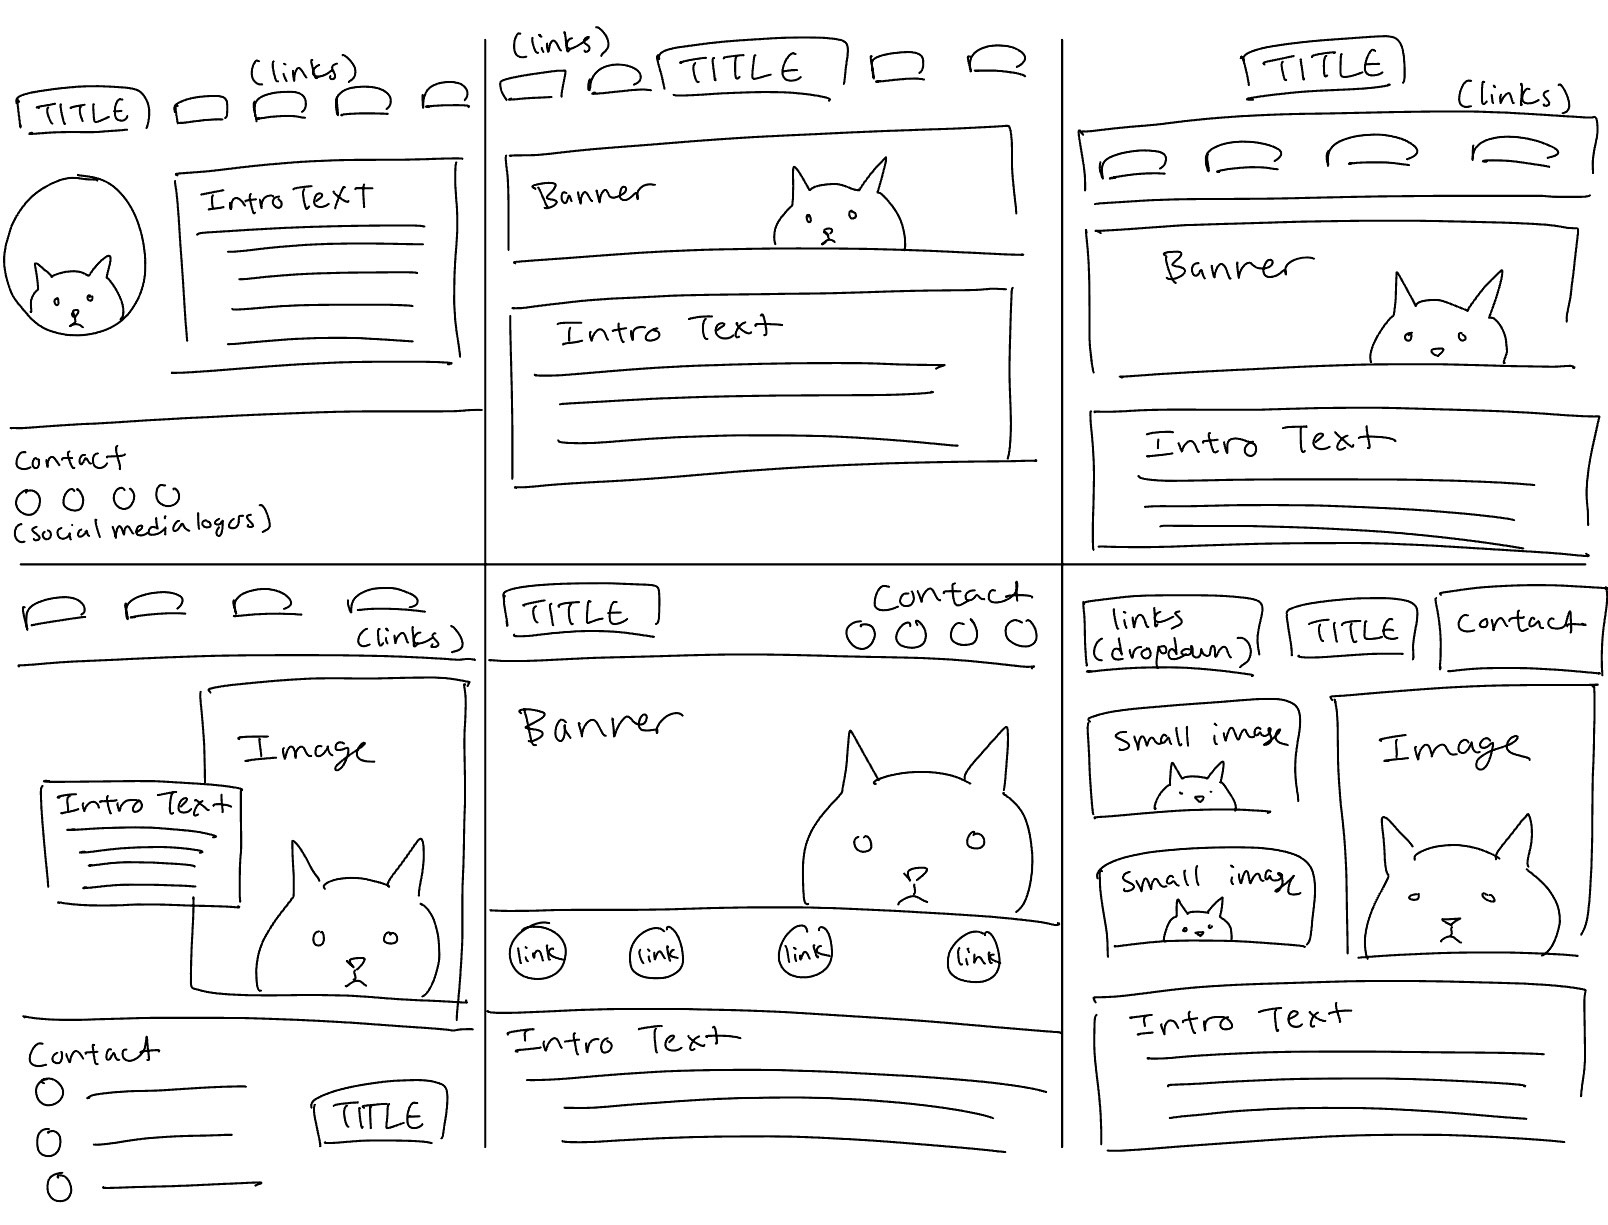 (links)
TITLE
Intro Text
Contact
(social media logos)
(links)
TITLE
Banner
Intro Text
TITLE
(links)
Banner
Intro Text
(links)
Image
Intro Text
Contact
TITLE
TITLE
Contact
Banner
link link link link
Intro Text
links
(dropdown)
TITLE
Contact
Small image
Image
Small image
Intro Text